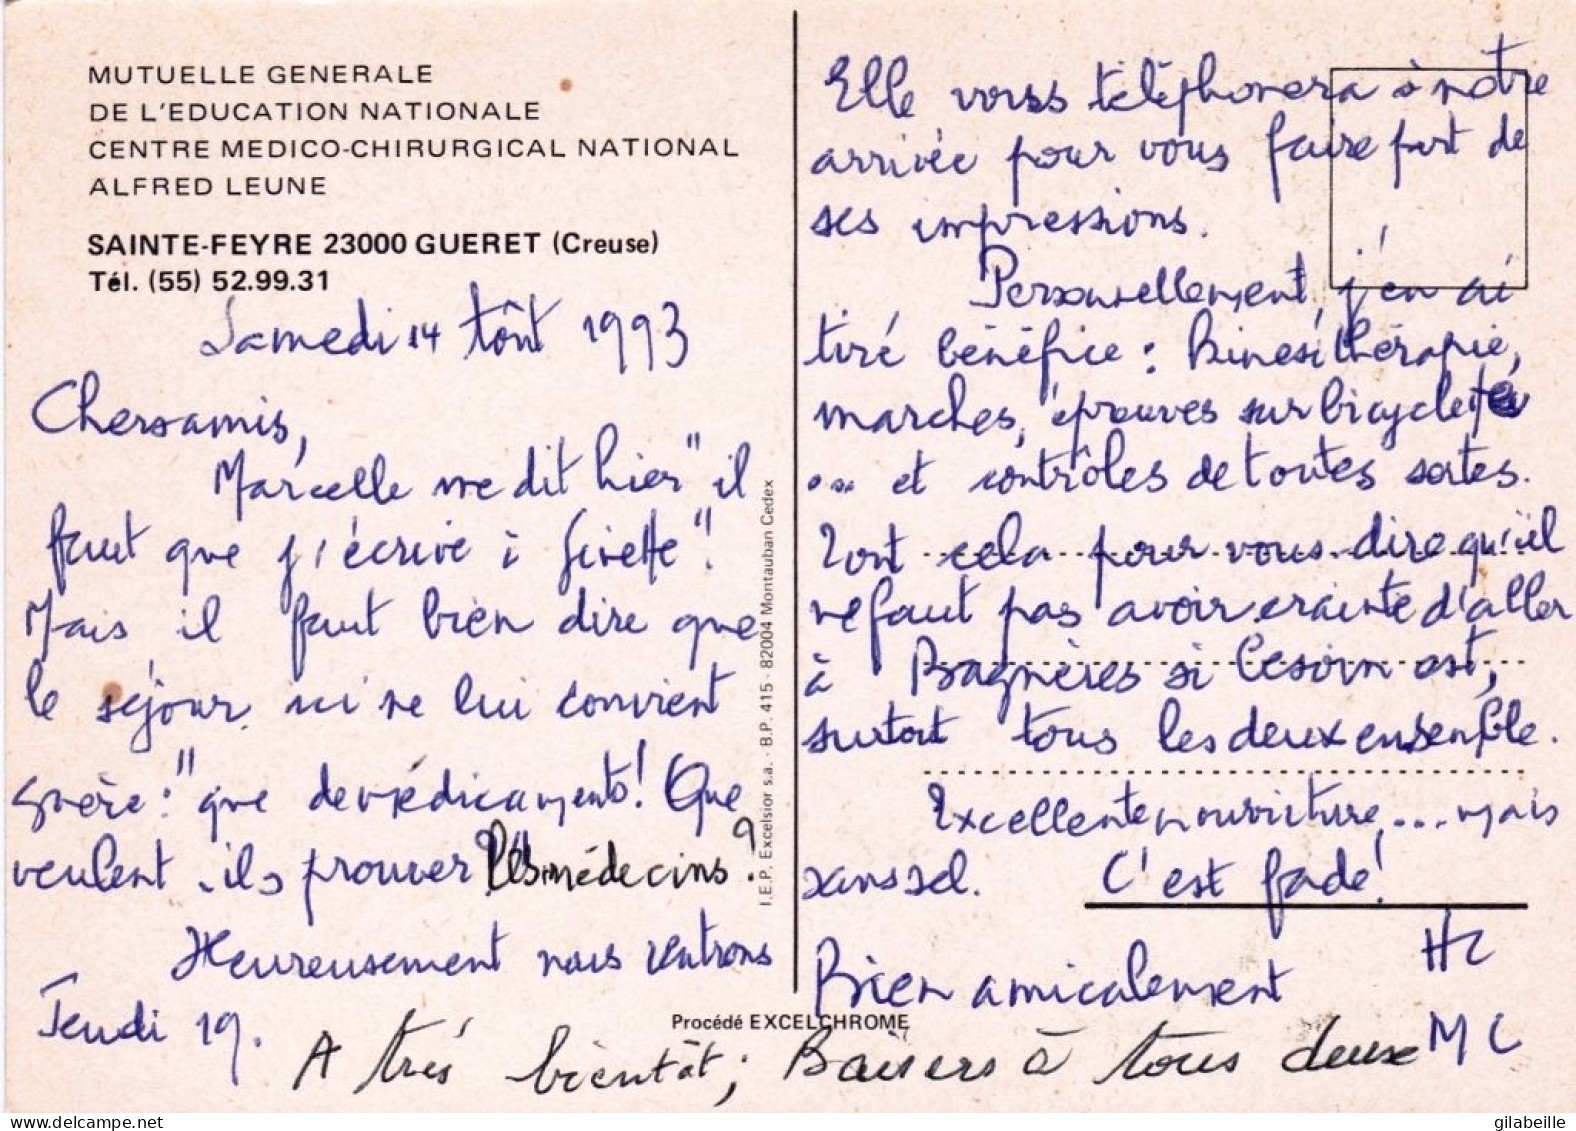 MUTUELLE GENERALE
DE L'EDUCATION NATIONALE
CENTRE MEDICO-CHIRURGICAL NATIONAL
ALFRED LEUNE
SAINTE-FEYRE 23000 GUERET (Creuse)
Tél. (55) 52.99.31
Samedi 14 Août 1993
Chers amis,
Marcelle me dit hier "il
faut que j'écrive à Ginette"!
Mais il faut bien dire que
le séjour ici ne lui convient
guère: "que de médicaments! Que
veulent-ils prouver" les médecins?
Heureusement nous rentrons
Jeudi 19.
A très bientôt; Baisers à tous deux
I.E.P. Excelsior s.a. - B.P. 415 - 82004 Montauban Cedex
Procédé EXCELCHROME
Elle vous téléphonera à notre
arrivée pour vous faire part de
ses impressions.
Personnellement, j'en ai
tiré bénéfice : Kinésithérapie,
marches, épreuves sur bicyclette
... et contrôles de toutes sortes.
Tout cela pour vous dire qu'il
ne faut pas avoir crainte d'aller
à Bagnères si besoin est,
surtout tous les deux ensemble.
Excellente nourriture,... mais
sans sel. C'est fade!
Bien amicalement
HC
MC
delcampe.net
gilabeille